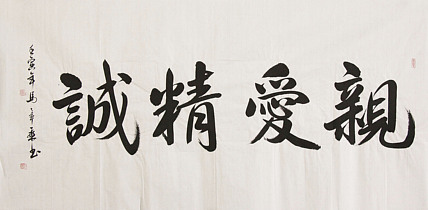 親愛精誠
壬寅年馬書